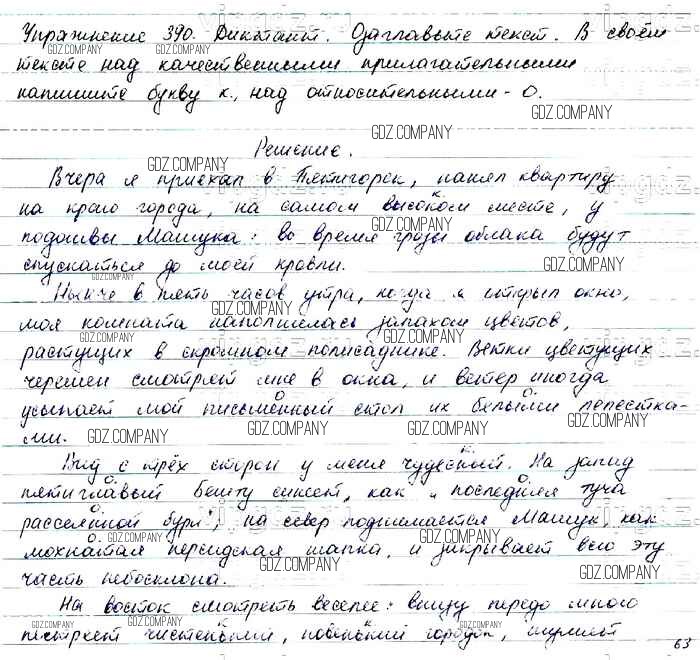 Упражнение 390. Диктант. Озаглавьте текст. В своём
тексте над качественными прилагательными
напишите букву к., над относительными - о.
Решение.
Вчера я приехал в Пятигорск, нанял квартиру
на краю города, на самом высоком месте, у
подошвы Машука: во время грозы облака будут
спускаться до моей кровли.
Нынче в пять часов утра, когда я открыл окно,
моя комната наполнилась запахом цветов,
растущих в скромном полисаднике. Ветки цветущих
черешен смотрят мне в окна, и ветер иногда
усыпает мой письменный стол их белыми лепестка-
ми.
Вид с трёх сторон у меня чудесный. На запад
пятиглавый Бешту синеет, как "последняя туча
рассеянной бури", на север поднимается Машук, как
мохнатая персидская шапка, и закрывает всю эту
часть небосклона.
На восток смотреть веселее: внизу передо мною
пестреет чистенький, новенький городок, шумят
63
GDZ.COMPANY